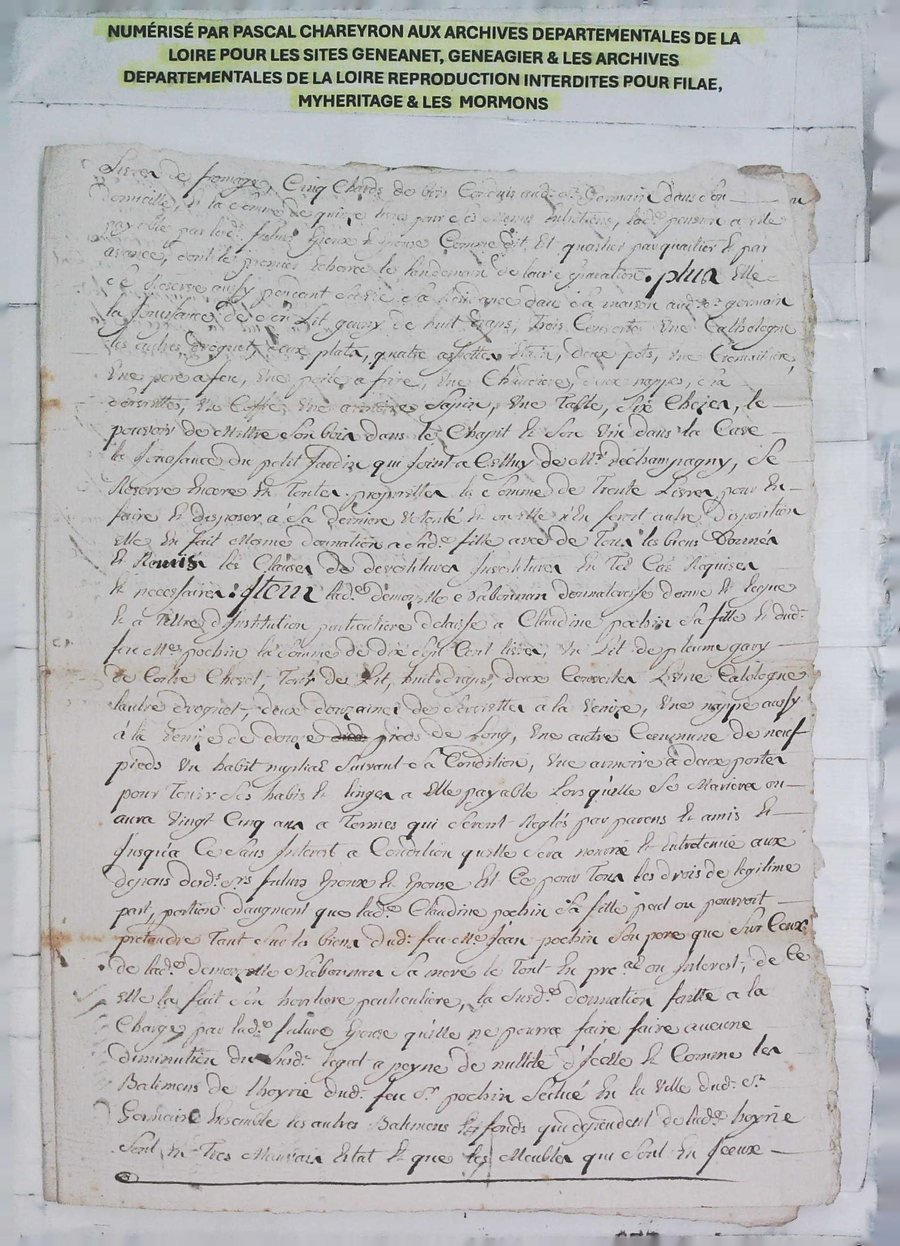 NUMÉRISÉ PAR PASCAL CHAREYRON AUX ARCHIVES DEPARTEMENTALES DE LA
LOIRE POUR LES SITES GENEANET, GENEAGIER & LES ARCHIVES
DEPARTEMENTALES DE LA LOIRE REPRODUCTION INTERDITES POUR FILAE,
MYHERITAGE & LES MORMONS
Livres de fromage, Cinq Chards de bois Conduis aud. St. Germain dans son
domicille, & la somme de quinze livres pour ses menus entretiens, lad. pension a elle
payable par lesd. futurs Epoux & Epouse Comme dit Est quartier par quartier & par
avance, dont le premier le landemain de leur separation. plus Elle
se Reserve aussy pendant sa vie dans sa maison aud. St. germain
la Jouissance de son Lit garny de huit draps, Trois Une Cathologne
les autres drognet, deux plats, quatre assiettes Etain, deux pots, une Cremaillere,
Une poile a frire, Une Chaudiere, deux nappes, six
serviettes, Un Coffre, Une armoire Sapin, Une Table, Six Chezes, le
pouvoir de Mettre Son bois dans le Chapit & Son Vin dans la Cave
la Jouissance du petit Jardin qui Joint a Celluy de Mr. dechampagny, Se
Reserve Encore En Toutes proprietes la somme de Trente Livres pour En
faire & disposer a sa derniere Volonté & ou elle n'En feroit autre Disposition
Elle En fait Meme donnation a lad. fille avec de Tous les biens Donnés
& Remis les Clauses de devestiture Investiture En Tel Cas Requises
& necessaires : Item lad. demoizelle donnateresse donne & legue
& a Titre d'Institution particuliere delaisse a Claudine pochin sa fille & dud.
feu pochin la somme de dix sept Cent livres, un Lit de plume gary
de Coitre Chevet, Tour de Lit, huit draps, deux Couvertes L'Une Catologne
lautre drognet, deux douzaines de serviettes a la Venize, Une nappe aussy
à la Venize de douze pieds de Long, Une autre Commune de neuf
pieds Un habit nuptial Suivant sa Condition, Une armoire a deux portes
pour Tenir Ses habis & linges a Elle payable Lors qu'elle Se Mariera ou
aura Vingt Cinq ans a Termes qui Seront Reglés par parens & amis &
Jusqu'a Ce Sans Interest a Condition quelle Sera nourrie & Entretenue aux
depens desd. futurs Epoux & Epouse Et Ce pour Tous les drois de legitime
part, portion daugment que lad. Claudine pochin sa fille peut ou pourroit
pretendre Tant Sur les biens dud. feu Jean pochin Son pere que Sur Ceux
de lad. demoizelle Sa mere le Tout En pre.al ou Interest, de Ce
Elle la fait son heritiere particuliere, la Susd. donnation faitte a la
Charge par lad. future Epouse qu'elle ne pourra faire faire aucune
diminution du Susd. legat a peyne de nullité d'Icelle & Comme les
Batimens de lhoyrie dud. feu Sr. pochin Scitué En la Ville dud. St.
Germain Ensemble les autres Batimens & fonds qui dependent de lad. hoyrie
Sont En Tres Mauvais Estat & que les Meubles qui Sont En Jceux